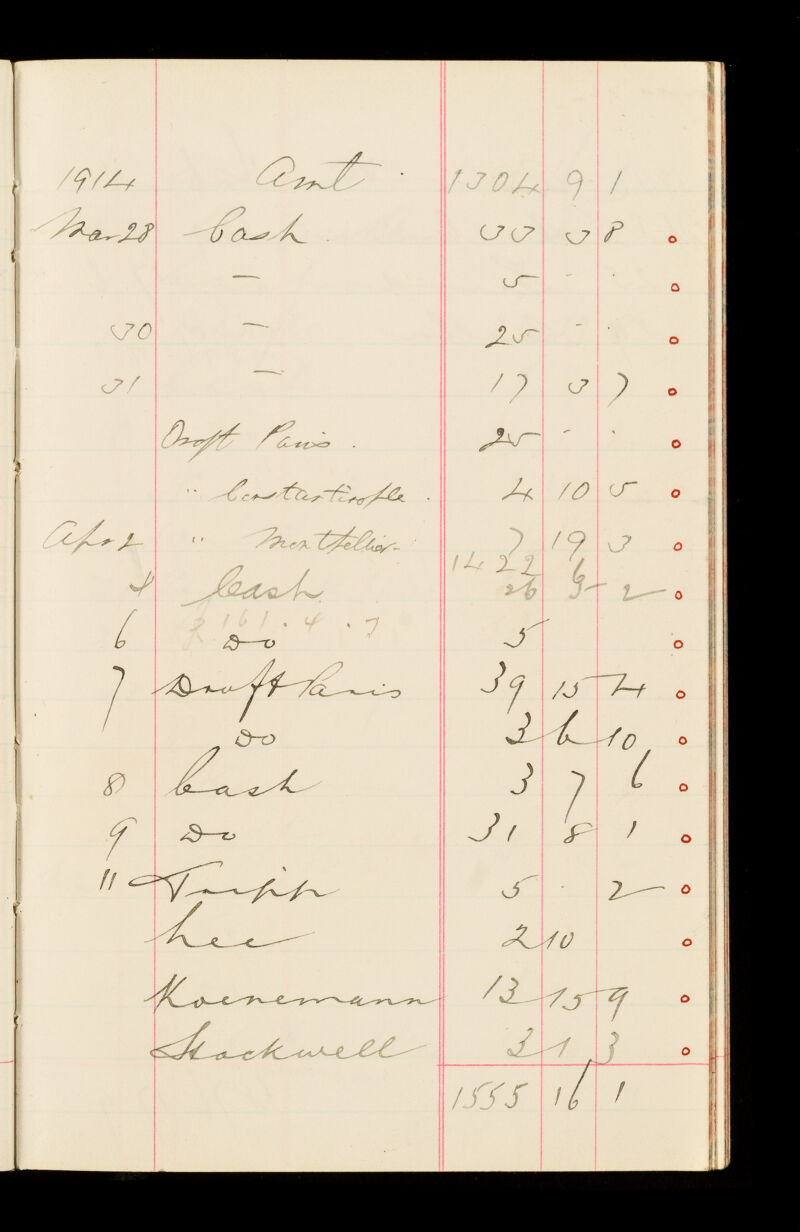 1914 Amt . 1304 9 1
Mar 28 Cash . 33 3 8
— 5 - -
30 — 25 - -
31 — 17 3 7
Draft Paris . 25 - -
" Constantinople . 4 10 5
Apr 2 " Montpellier - 7 19 3
1422 6
4 Cash 26 5 2
161 . 4 . 7
6 Do 5
7 Draft Paris 39 15 4
Do 3 6 10
8 Cash 3 7 6
9 Do 31 8 1
11 Tripp 5 . 2
Lee 2 10
Koenemann 13 15 9
Stockwell 3 1 3
1555 16 1